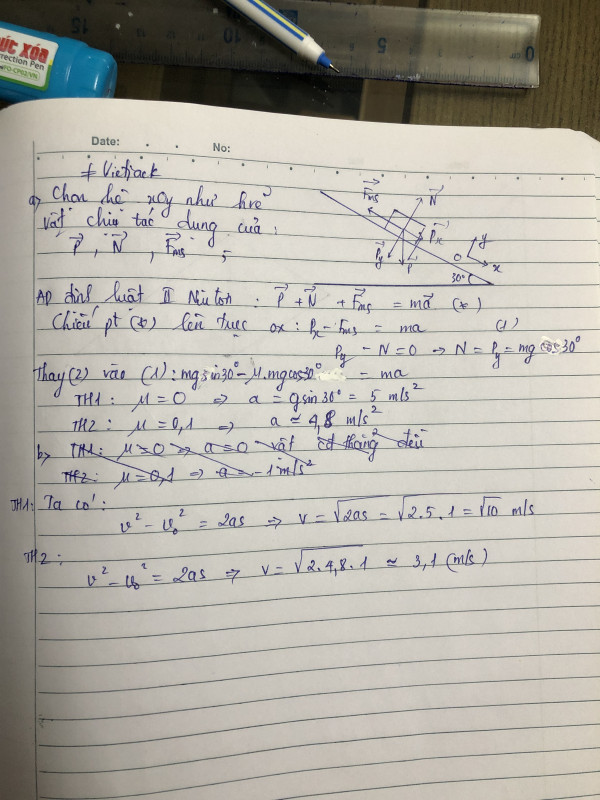 ỨC XÓA
rrection Pen
FO-CP02/VN
15
10
5
0
Date:
No:
# Vietjack
a, Chọn hệ xOy như hvẽ
vật chịu tác dụng của:
P, N, Fms
Fms
N
Px
Py
P
y
O
x
30°
AD định luật II Niu tơn: P + N + Fms = ma (*)
Chiếu pt (*) lên trục ox: Px - Fms = ma (1)
Py - N = 0 → N = Py = mg cos30°
Thay (2) vào (1): mg sin30° - μ.mgcos30° = ma
TH1: μ = 0 ⇒ a = gsin30° = 5 m/s²
TH2: μ = 0,1 ⇒ a ≈ 4,8 m/s²
b, TH1: μ = 0 ⇒ a = 0 vật cđ thẳng đều
TH2: μ = 0,1 ⇒ a = -1 m/s²
TH1: Ta có:
v² - v₀² = 2as ⇒ v = √2as = √2.5.1 = √10 m/s
TH2:
v² - v₀² = 2as ⇒ v = √2.4,8.1 ≈ 3,1 (m/s)